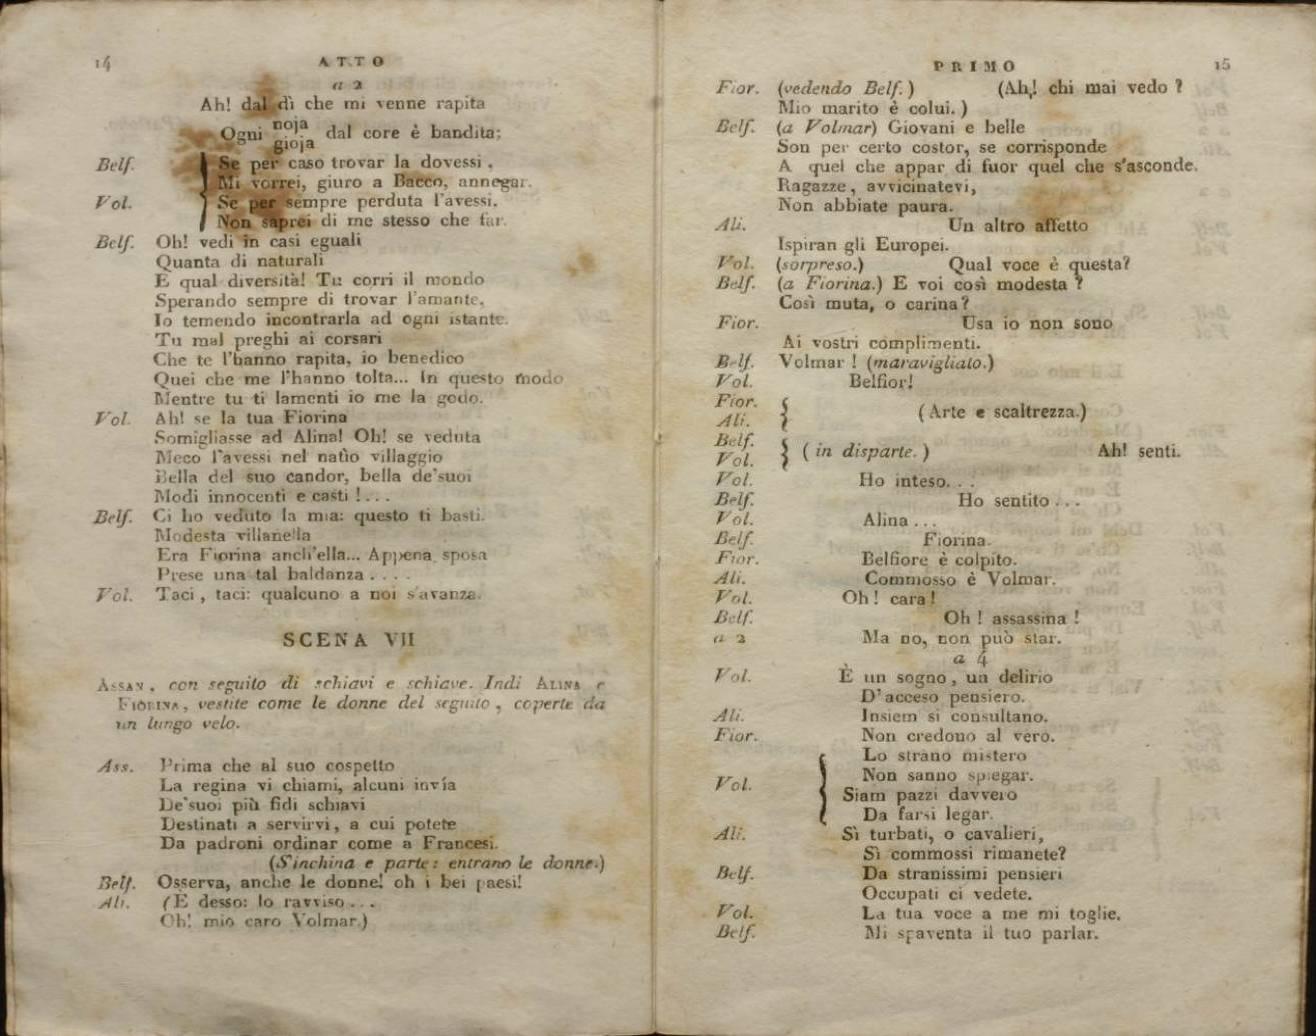 14 ATTO
a 2
Ah! dal dì che mi venne rapita
Ogni noja dal core è bandita;
gioja
Belf. Se per caso trovar la dovessi,
Mi vorrei, giuro a Bacco, annegar.
Vol. Se per sempre perduta l'avessi,
Non saprei di me stesso che far.
Belf. Oh! vedi in casi eguali
Quanta di naturali
E qual diversità! Tu corri il mondo
Sperando sempre di trovar l'amante,
Io temendo incontrarla ad ogni istante.
Tu mal preghi ai corsari
Che te l'hanno rapita, io benedico
Quei che me l'hanno tolta... In questo modo
Mentre tu ti lamenti io me la godo.
Vol. Ah! se la tua Fiorina
Somigliasse ad Alina! Oh! se veduta
Meco l'avessi nel natìo villaggio
Bella del suo candor, bella de'suoi
Modi innocenti e casti!...
Belf. Ci ho veduto la mia: questo ti basti.
Modesta villanella
Era Fiorina anch'ella... Appena sposa
Prese una tal baldanza....
Vol. Taci, taci: qualcuno a noi s'avanza.
SCENA VII
Assan, con seguito di schiavi e schiave. Indi Alina e
Fiorina, vestite come le donne del seguito, coperte da
un lungo velo.
Ass. Prima che al suo cospetto
La regina vi chiami, alcuni invía
De'suoi più fidi schiavi
Destinati a servirvi, a cui potete
Da padroni ordinar come a Francesi.
(S'inchina e parte: entrano le donne.)
Belf. Osserva, anche le donne! oh i bei paesi!
Ali. (È desso: lo ravviso...
Oh! mio caro Volmar.)
PRIMO 15
Fior. (vedendo Belf.) (Ah,! chi mai vedo?
Mio marito è colui.)
Belf. (a Volmar) Giovani e belle
Son per certo costor, se corrisponde
A quel che appar di fuor quel che s'asconde.
Ragazze, avvicinatevi,
Non abbiate paura.
Ali. Un altro affetto
Ispiran gli Europei.
Vol. (sorpreso.) Qual voce è questa?
Belf. (a Fiorina.) E voi così modesta?
Così muta, o carina?
Fior. Usa io non sono
Ai vostri complimenti.
Belf. Volmar! (maravigliato.)
Vol. Belfior!
Fior.
Ali. (Arte e scaltrezza.)
Belf.
Vol. (in disparte.) Ah! senti.
Vol. Ho inteso...
Belf. Ho sentito...
Vol. Alina...
Belf. Fiorina.
Fior. Belfiore è colpito.
Ali. Commosso è Volmar.
Vol. Oh! cara!
Belf. Oh! assassina!
a 2 Ma no, non può star.
a 4
Vol. È un sogno, un delirio
D'acceso pensiero.
Ali. Insiem si consultano.
Fior. Non credono al vero.
Lo strano mistero
Non sanno spiegar.
Vol. Siam pazzi davvero
Da farsi legar.
Ali. Sì turbati, o cavalieri,
Sì commossi rimanete?
Belf. Da stranissimi pensieri
Occupati ci vedete.
Vol. La tua voce a me mi toglie.
Belf. Mi spaventa il tuo parlar.